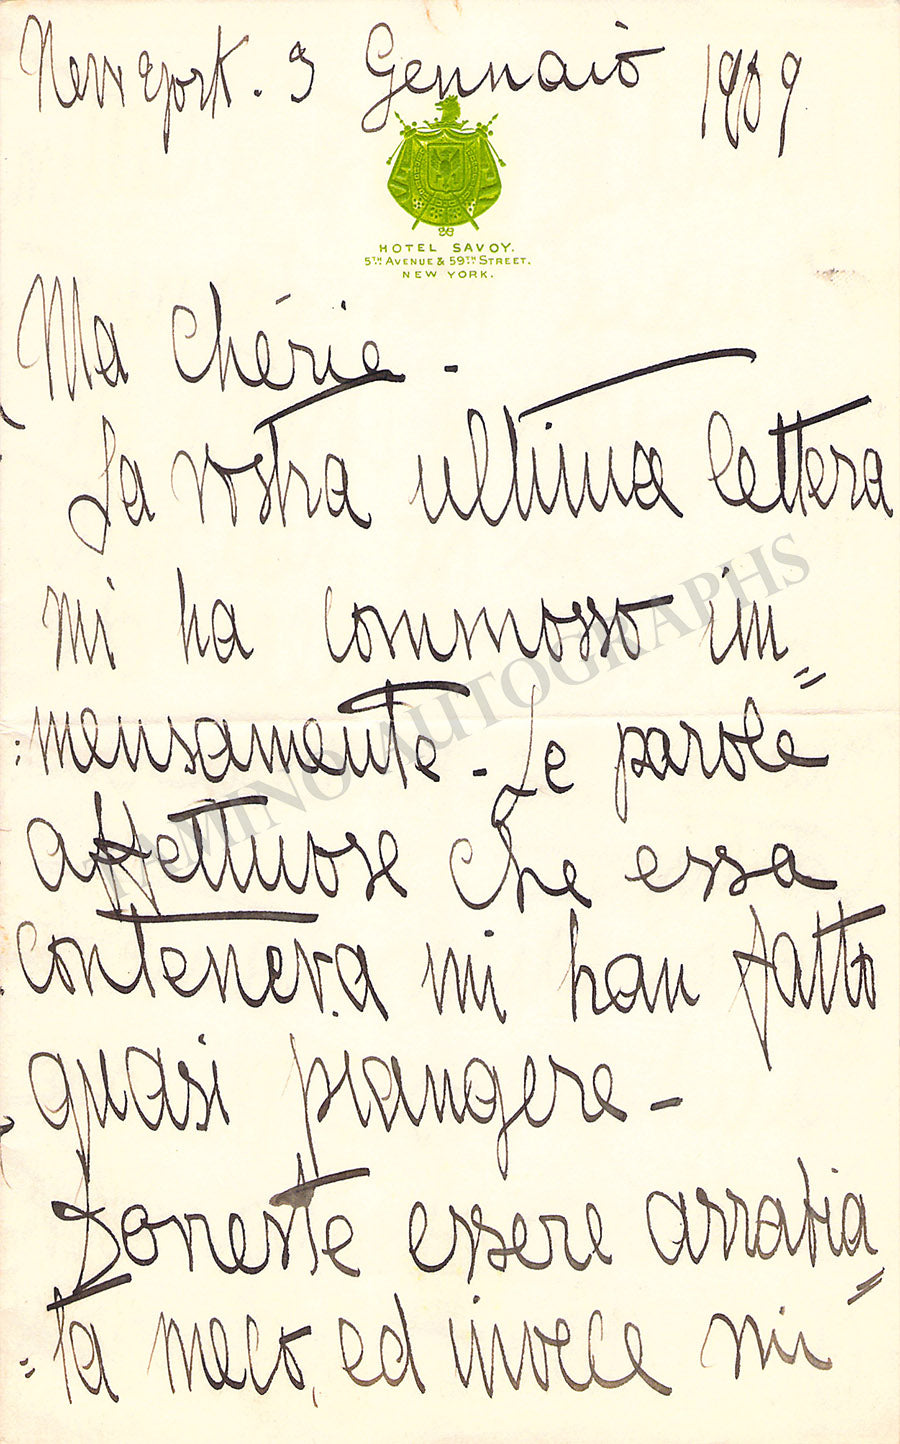 New York. 3 Gennaio 1909
HOTEL SAVOY.
5TH AVENUE & 59TH STREET.
NEW YORK.
Ma Chérie -
La vostra ultima lettera
mi ha commosso im=
:mensamente - Le parole
affettuose che essa
conteneva mi han fatto
quasi piangere -
Doveste essere arrabia=
=ta meco, ed invece mi
TAMINO AUTOGRAPHS